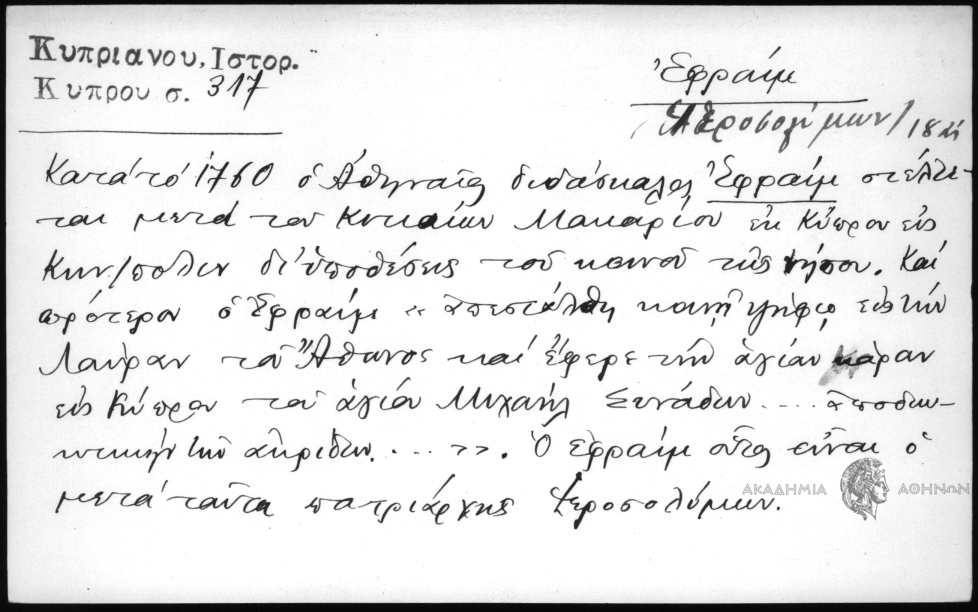 Κυπριανου, Ιστορ.
Κυπρου σ. 317
Ἐφραίμ
Ἱεροσολύμων / 18
Κατὰ τὸ 1760 ὁ Ἀθηναῖος διδάσκαλος Ἐφραίμ στέλλε-
ται μετὰ τοῦ Κυκκαίων Μακαρίου ἐκ Κύπρου εἰς
Κων/πολιν δι' ὑποθέσεις τοῦ κοινοῦ τῆς νήσου. Καὶ
πρότερον ὁ Ἐφραίμ « ἀπεστάλθη κοινῇ ψήφῳ εἰς τὴν
Λαύραν τοῦ Ἄθωνος καὶ ἔφερε τὴν ἁγίαν κάραν
εἰς Κύπρον τοῦ ἁγίου Μιχαὴλ Συνάδων .... ἀποδιω-
κτικὴν τῶν ἀκρίδων .... ». Ὁ Ἐφραίμ οὗτος εἶναι ὁ
μετὰ ταῦτα πατριάρχης Ἱεροσολύμων.
ΑΚΑΔΗΜΙΑ ΑΘΗΝΩΝ